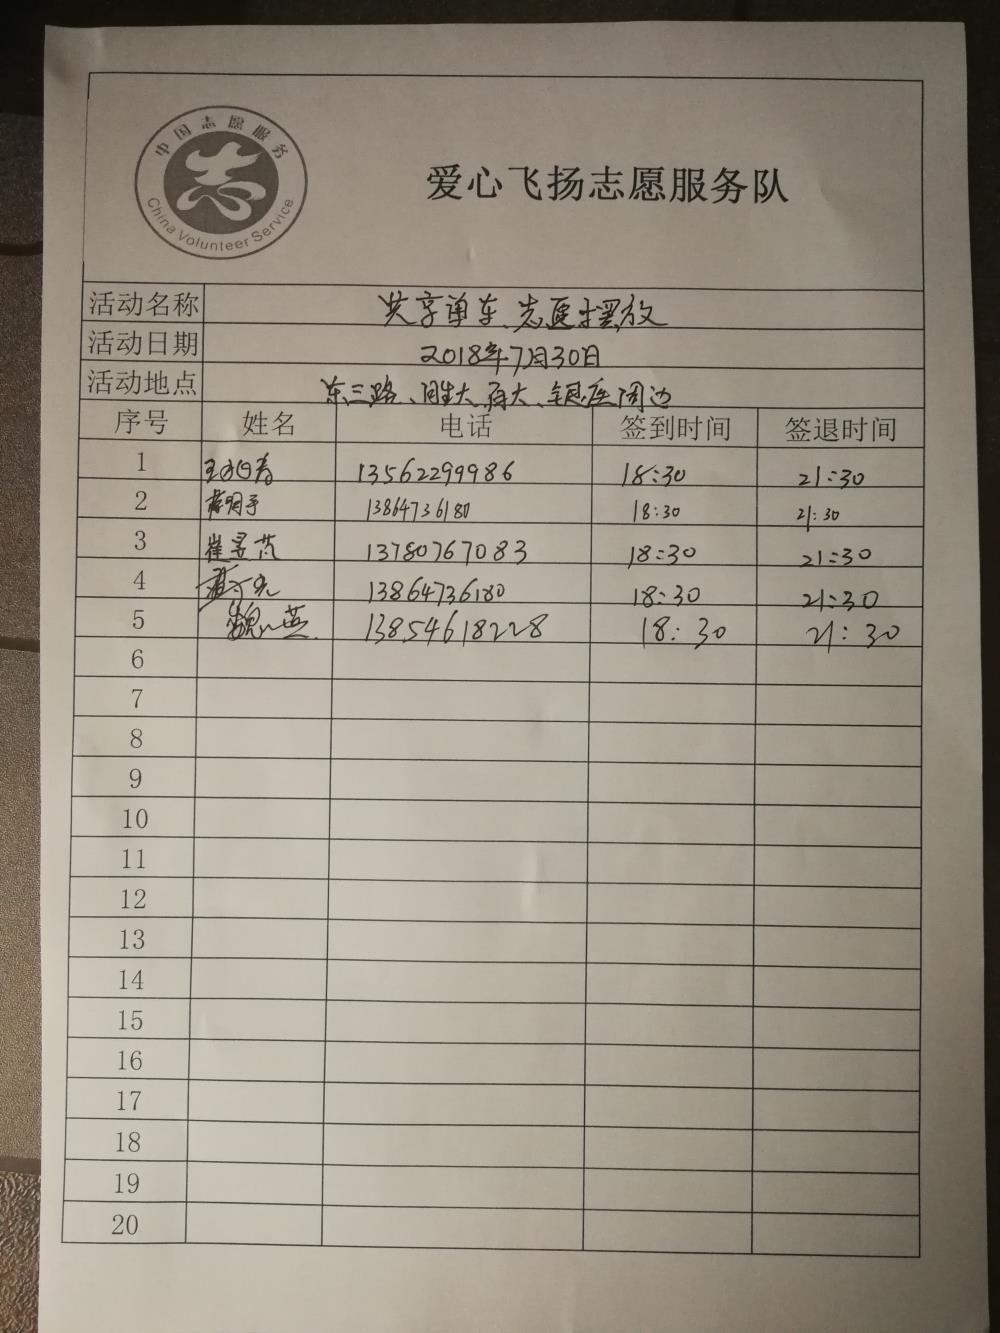 中国志愿服务
China Volunteer Service
爱心飞扬志愿服务队
活动名称 共享单车、志愿摆放
活动日期 2018年7月30日
活动地点 东三路、大、银座周边
序号 姓名 电话 签到时间 签退时间
1 13562299986 18:30 21:30
2 13864736180 18:30 21:30
3 崔昱 13780767083 18:30 21:30
4 13864736180 18:30 21:30
5 魏燕 13854618228 18:30 21:30
6
7
8
9
10
11
12
13
14
15
16
17
18
19
20